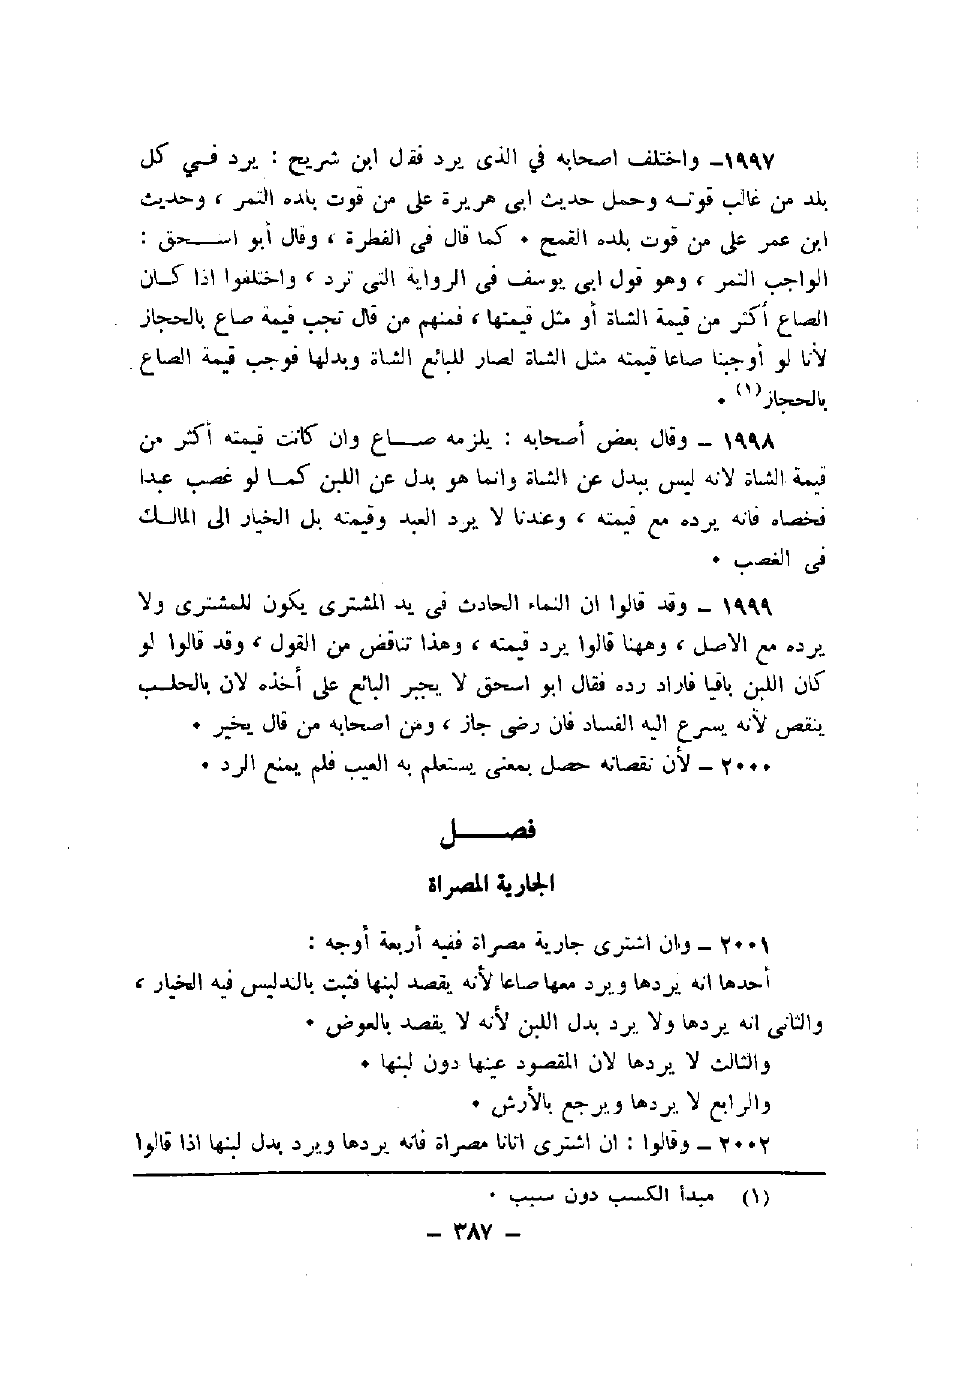 ١٩٩٧ــ واختلف اصحابه في الذى يرد فقل ابن شريح : يرد فــي كل
بلد من غالب قوتــه وحمل حديث ابى هريرة على من قوت بلده التمر ، وحديث
ابن عمر على من قوت بلده القمح . كما قال فى الفطرة ، وقال أبو اســـحق :
الواجب التمر ، وهو قول ابى يوسف فى الرواية التى ترد ، واختلفوا اذا كــان
الصاع أكثر من قيمة الشاة أو مثل قيمتها ، فمنهم من قال تجب قيمة صاع بالحجاز
لأنا لو أوجبنا صاعا قيمته مثل الشاة لصار للبائع الشاة وبدلها فوجب قيمة الصاع
بالحجاز(١) .
١٩٩٨ ــ وقال بعض أصحابه : يلزمه صـــاع وان كانت قيمته أكثر من
قيمة الشاة لانه ليس ببدل عن الشاة وانما هو بدل عن اللبن كمــا لو غصب عبدا
فخصاه فانه يرده مع قيمته ، وعندنا لا يرد العبد وقيمته بل الخيار الى المالــك
فى الغصب .
١٩٩٩ ــ وقد قالوا ان النماء الحادث فى يد المشترى يكون للمشترى ولا
يرده مع الاصل ، وههنا قالوا يرد قيمته ، وهذا تناقض من القول ، وقد قالوا لو
كان اللبن باقيا فاراد رده فقال ابو اسحق لا يجبر البائع على أخذه لان بالحلــب
ينقص لأنه يسرع اليه الفساد فان رضى جاز ، ومن اصحابه من قال يخير .
٢٠٠٠ ــ لأن نقصانه حصل بمعنى يستعلم به العيب فلم يمنع الرد .
فصـــــل
الجارية المصراة
٢٠٠١ ــ وان اشترى جارية مصراة ففيه أربعة أوجه :
أحدها انه يردها ويرد معها صاعا لأنه يقصد لبنها فثبت بالتدليس فيه الخيار ،
والثانى انه يردها ولا يرد بدل اللبن لأنه لا يقصد بالعوض .
والثالث لا يردها لان المقصود عينها دون لبنها .
والرابع لا يردها ويرجع بالأرش .
٢٠٠٢ ــ وقالوا : ان اشترى اتانا مصراة فانه يردها ويرد بدل لبنها اذا قالوا
(١) مبدأ الكسب دون سبب .
ــ ٣٨٧ ــ